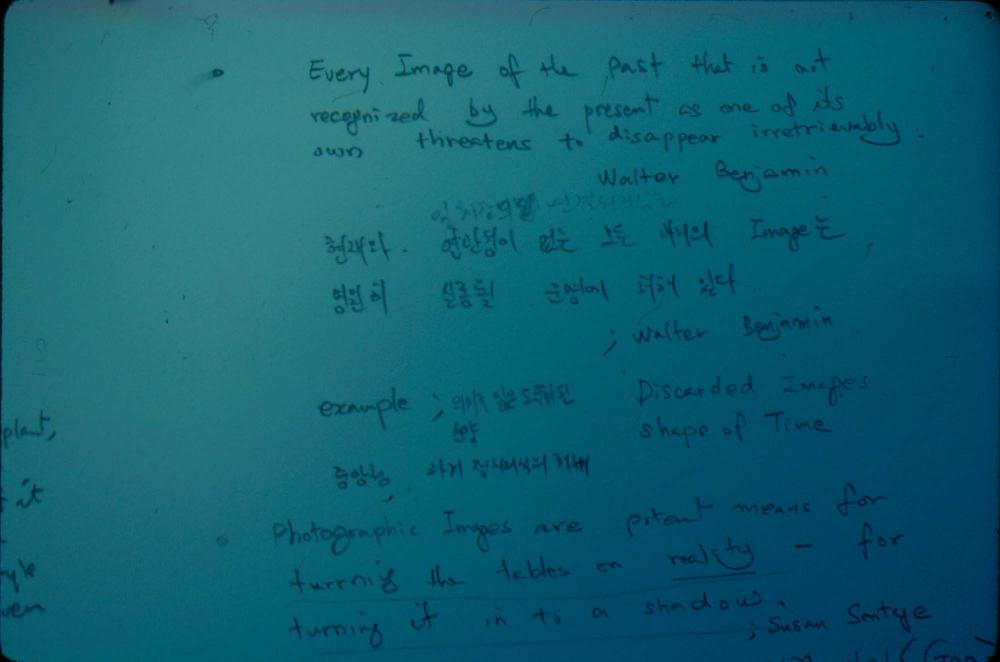 Every Image of the past that is not
recognized by the present as one of its
own threatens to disappear irretrievably.
Walter Benjamin
현재와 연관성이 없는 모든 과거의 Image는
영원히 실종될 운명에 처해 있다
; Walter Benjamin
example ; Discarded Images
shape of Time
중앙청 과거 정치의식의 
Photographic Images are potent means for
turrnig the tables on reality – for
turning it in to a shadow.
; Susan Sontge
plant,
it